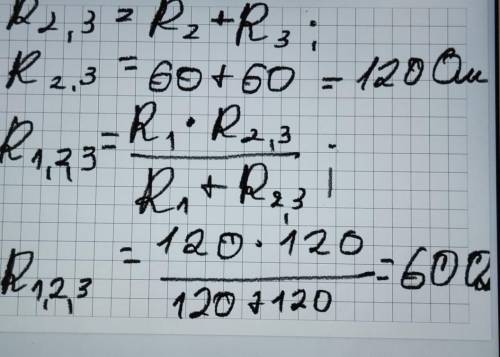 R2,3 = R2 + R3;
R2,3 = 60 + 60 = 120 Ом
R1,2,3 = R1 · R2,3 / R1 + R2,3;
R1,2,3 = 120 · 120 / 120 + 120 = 60